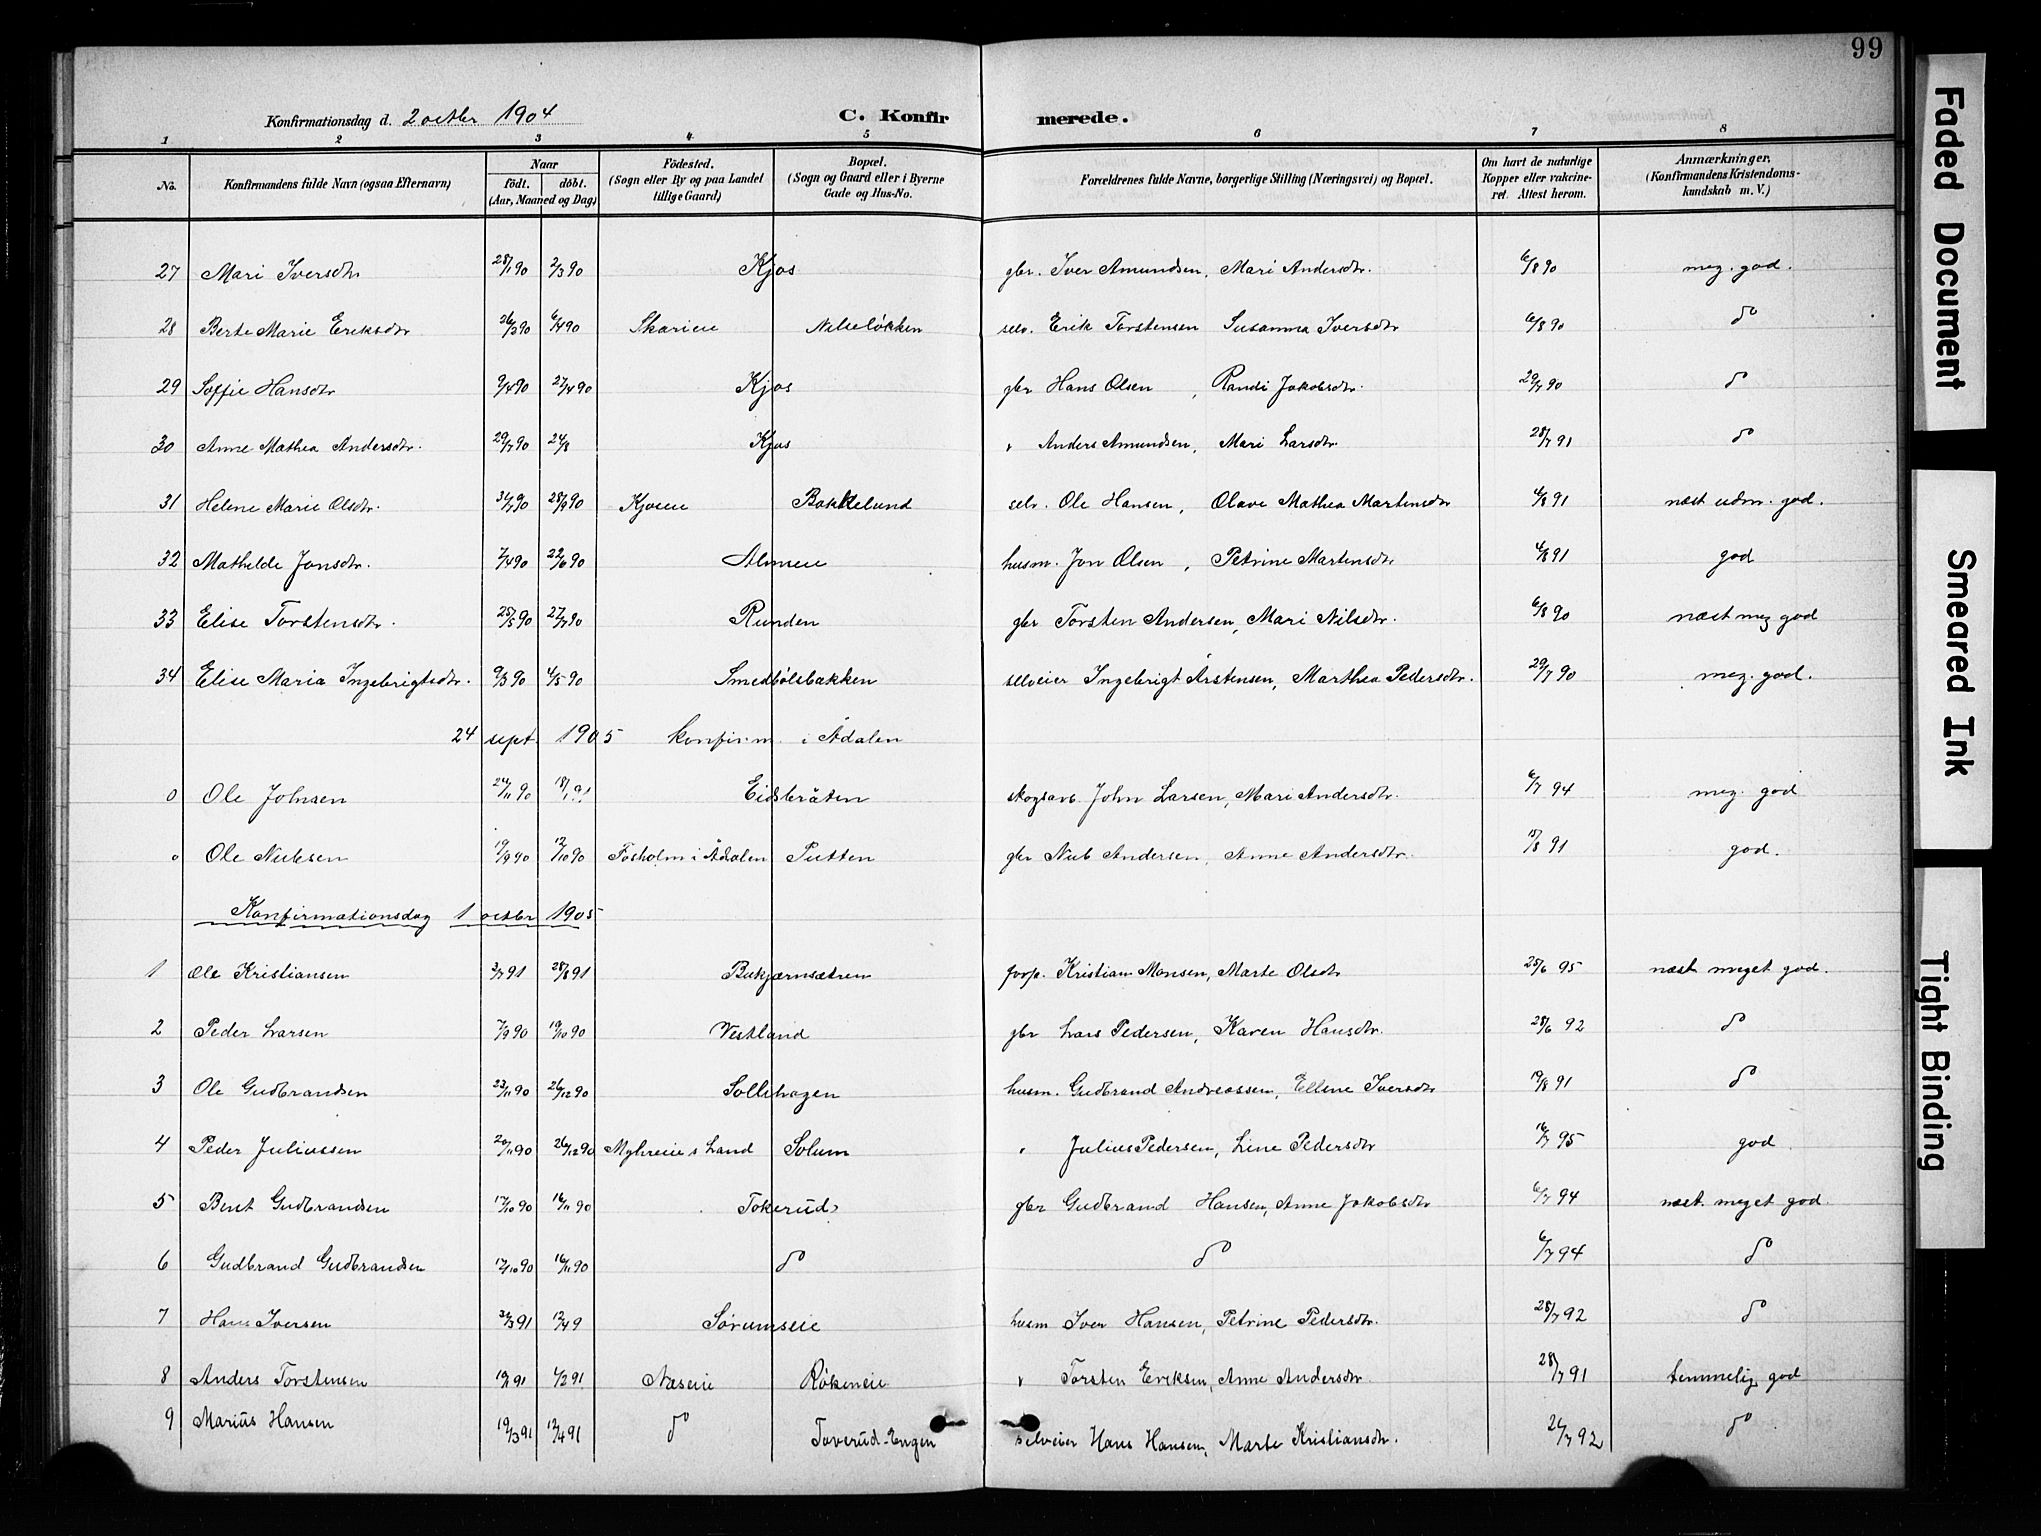 99
Konfirmationsdag d. 2 octbr 1904 C. Konfirmerede.
1 2 3 4 5 6 7 8
No. Konfirmandens fulde Navn (ogsaa Efternavn) Naar födt. döbt. (Aar, Maaned og Dag) Födested. (Sogn eller By og paa Landet tillige Gaard) Bopæl. (Sogn og Gaard eller i Byerne Gade og Hus-No. Forældrenes fulde Navne, borgerlige Stilling (Næringsvei) og Bopæl. Om havt de naturlige Kopper eller vakcineret. Attest herom. Anmærkninger. (Konfirmandens Kristendomskundskab m. V.)
27 Mari Iversdtr 28/1 90 2/3 90 Kjos gbr. Iver Amundsen, Mari Andersdtr. 6/8 90 meg. god.
28 Berte Marie Eriksdtr 26/2 90 6/4 90 Skarieie Nilseløkken selv. Erik Torstensen Susanna Iversdtr 6/8 90 do
29 Soffie Hansdtr 9/4 90 27/4 90 Kjos gbr Hans Olsen, Randi Jakobsdtr. 29/7 90 do
30 Anne Mathea Andersdtr. 29/7 90 24/8 Kjos " Anders Amundsen, Mari Larsdtr. 28/7 91 do
31 Helene Marie Olsdtr. 31/7 90 28/9 90 Kjoseie Bakkelund selv. Ole Hansen, Olave Mathea Martinsdtr 4/8 91 næst udm. god.
32 Mathilde Jonsdtr. 7/4 90 22/6 90 Almeie husm. Jon Olsen, Petrine Martensdtr 4/8 91 god
33 Elise Torstensdtr. 25/5 90 27/7 90 Runden gbr Torsten Andersen, Mari Nilsdtr. 6/8 90 næst meg god
34 Elise Maria Ingebrigtsdtr. 9/3 90 4/5 90 Smedbølsbakken selveier Ingebrigt Arstensen, Marthea Pedersdtr. 29/7 90 meg. god.
24 sept. 1905 konfirm. i Ådalen
0 Ole Johnsen 24/11 90 18/1 91 Eidsbråten skogsarb. John Larsen, Mari Andersdtr. 6/7 94 meg. god
0 Ole Nubsen 19/9 90 12/10 90 Fosholm i Ådalen Putten gbr Nub Andersen, Anne Andersdtr. 15/8 91 god.
Konfirmationsdag 1 octbr 1905
1 Ole Kristiansen 3/7 91 28/8 91 Bukjærnsætren forp. Kristian Monsen, Marte Olsdtr 25/6 95 næst meget god.
2 Peder Larsen 7/9 90 19/10 90 Vestland gbr Lars Pedersen, Karen Hansdtr. 28/6 92 do
3 Ole Gudbrandsen 23/11 90 26/12 90 Sollihagen husm. Gudbrand Andreassen, Ellene Iversdtr 19/8 91 do
4 Peder Juliussen 20/11 90 26/12 90 Myhreie s Land Solum " Julius Pedersen, Line Pedersdtr 16/7 95 god
5 Bent Gudbrandsen 17/10 90 16/11 90 Tokerud gbr Gudbrand Hansen, Anne Jakobsdtr 6/7 94 næst. meget god.
6 Gudbrand Gudbrandsen 17/10 90 16/11 90 do do 6/7 94 do
7 Hans Iversen 30/3 91 12/4 9 Sørumseie husm Iver Hansen, Petrine Pedersdtr. 28/7 92 do
8 Anders Torstensen 91 1/2 91 Næseie Røkeneie " Torsten Eriksen, Anne Andersdtr. 28/7 91 temmelig god
9 Marius Hansen 19/3 91 12/4 91 do Toverud-Engen selveier Hans Hansen, Marte Kristiansdtr. 26/7 92 do
Faded Document
Smeared Ink
Tight Binding